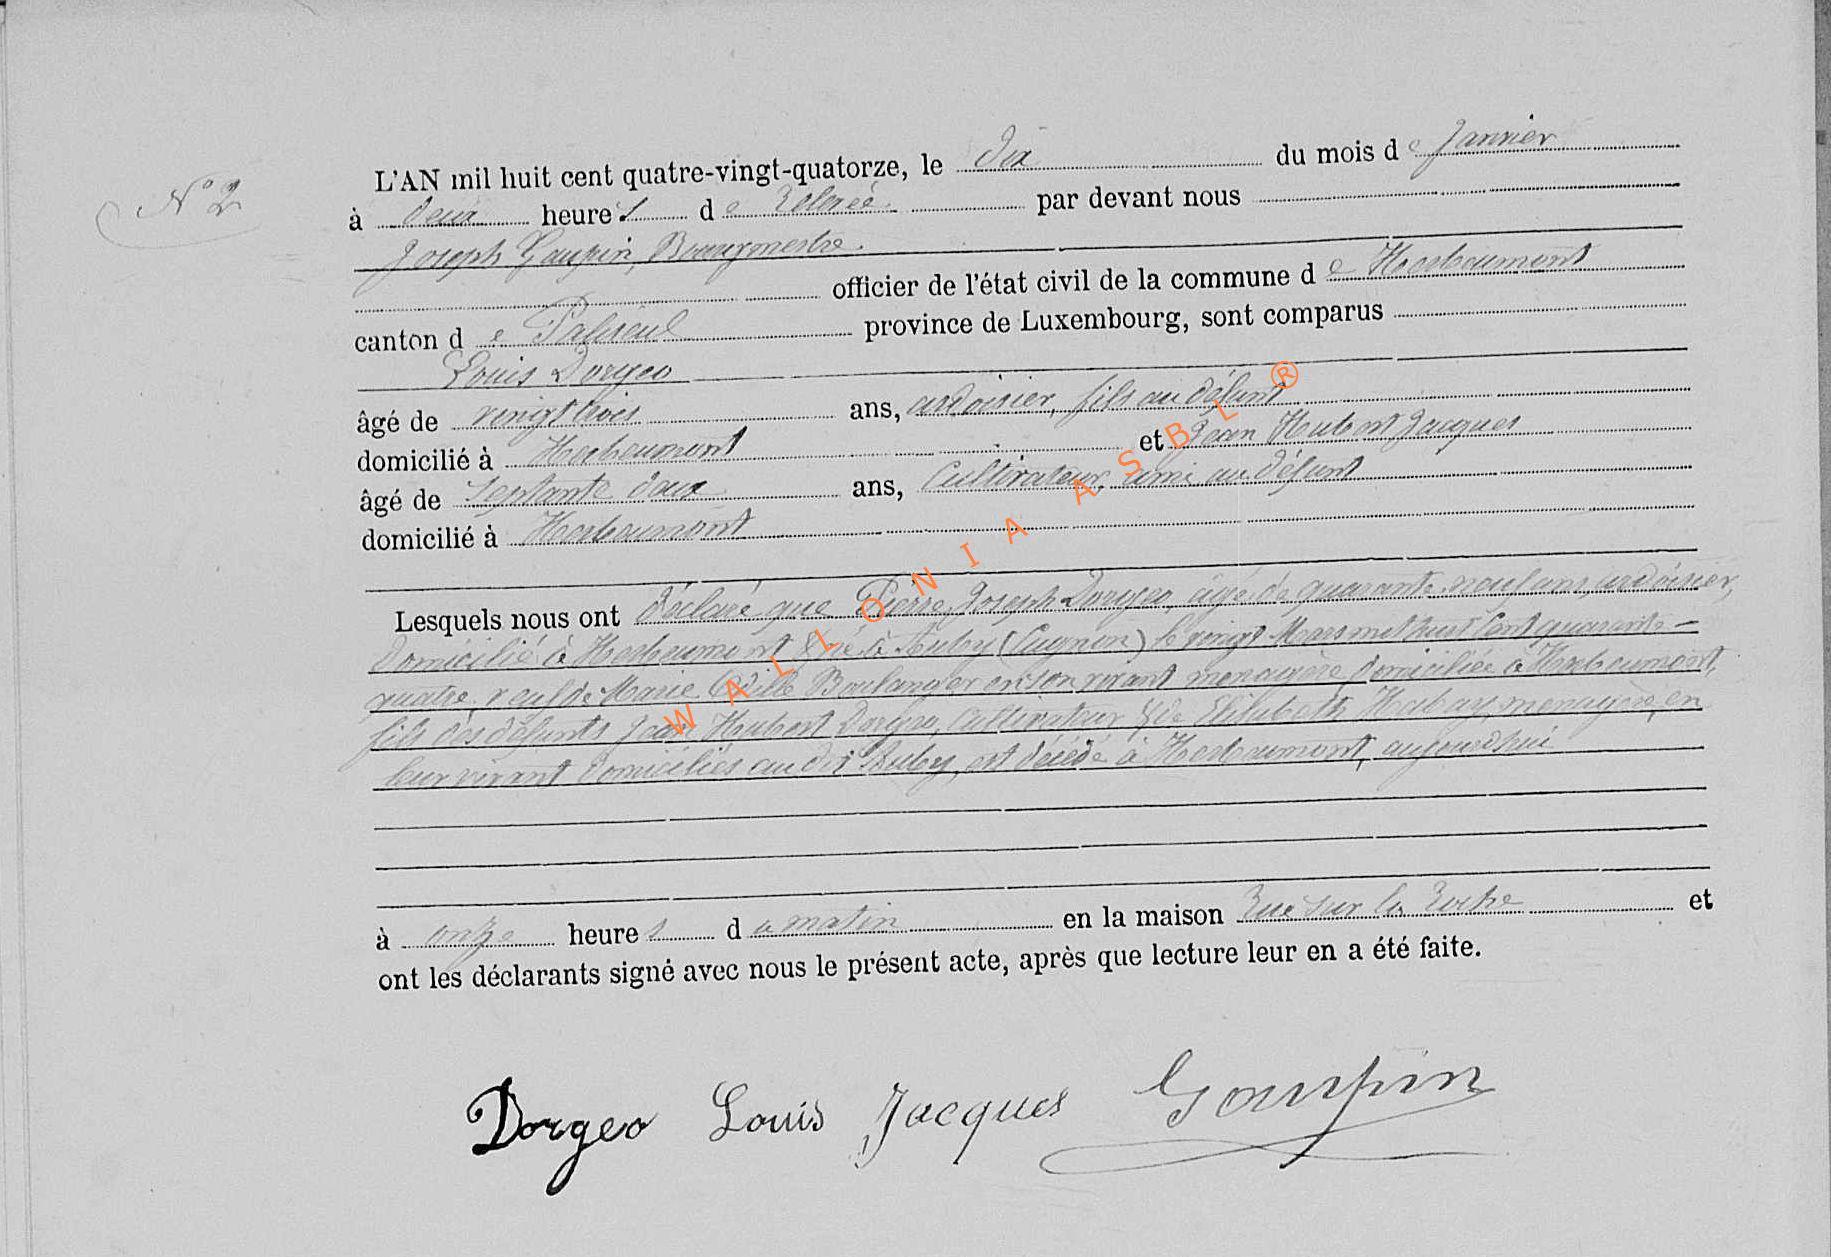 N° 2
L'AN mil huit cent quatre-vingt-quatorze, le dix du mois de Janvier
à deux heures de relevée par devant nous
Joseph Goupin, Bourgmestre.
officier de l'état civil de la commune de Herbeumont
canton de Paliseul province de Luxembourg, sont comparus
Louis Dorgeo
âgé de vingt trois ans, ardoisier, fils au défunt
domicilié à Herbeumont et Jean Hubert Jacques
âgé de septante deux ans, Cultivateur, ami au défunt
domicilié à Herbeumont
Lesquels nous ont déclaré que Pierre Joseph Dorgeo, âgé de quarante neuf ans, ardoisier,
domicilié à Herbeumont & né à Auby (Cugnon) le vingt Mars mil huit cent quarante-
quatre, veuf de Marie Odille Boulanger en son vivant menagère domiciliée à Herbeumont,
fils des défunts Jean Hubert Dorgeo, Cultivateur & de Elisabeth Habary, menagère, en
leur vivant domiciliés au dit Auby, est décédé à Herbeumont, aujourd'hui
à onze heures du matin en la maison Rue sur la Roche et
ont les déclarants signé avec nous le présent acte, après que lecture leur en a été faite.
Dorgeo Louis Jacques Goupin
WALLONIA ASBL ®